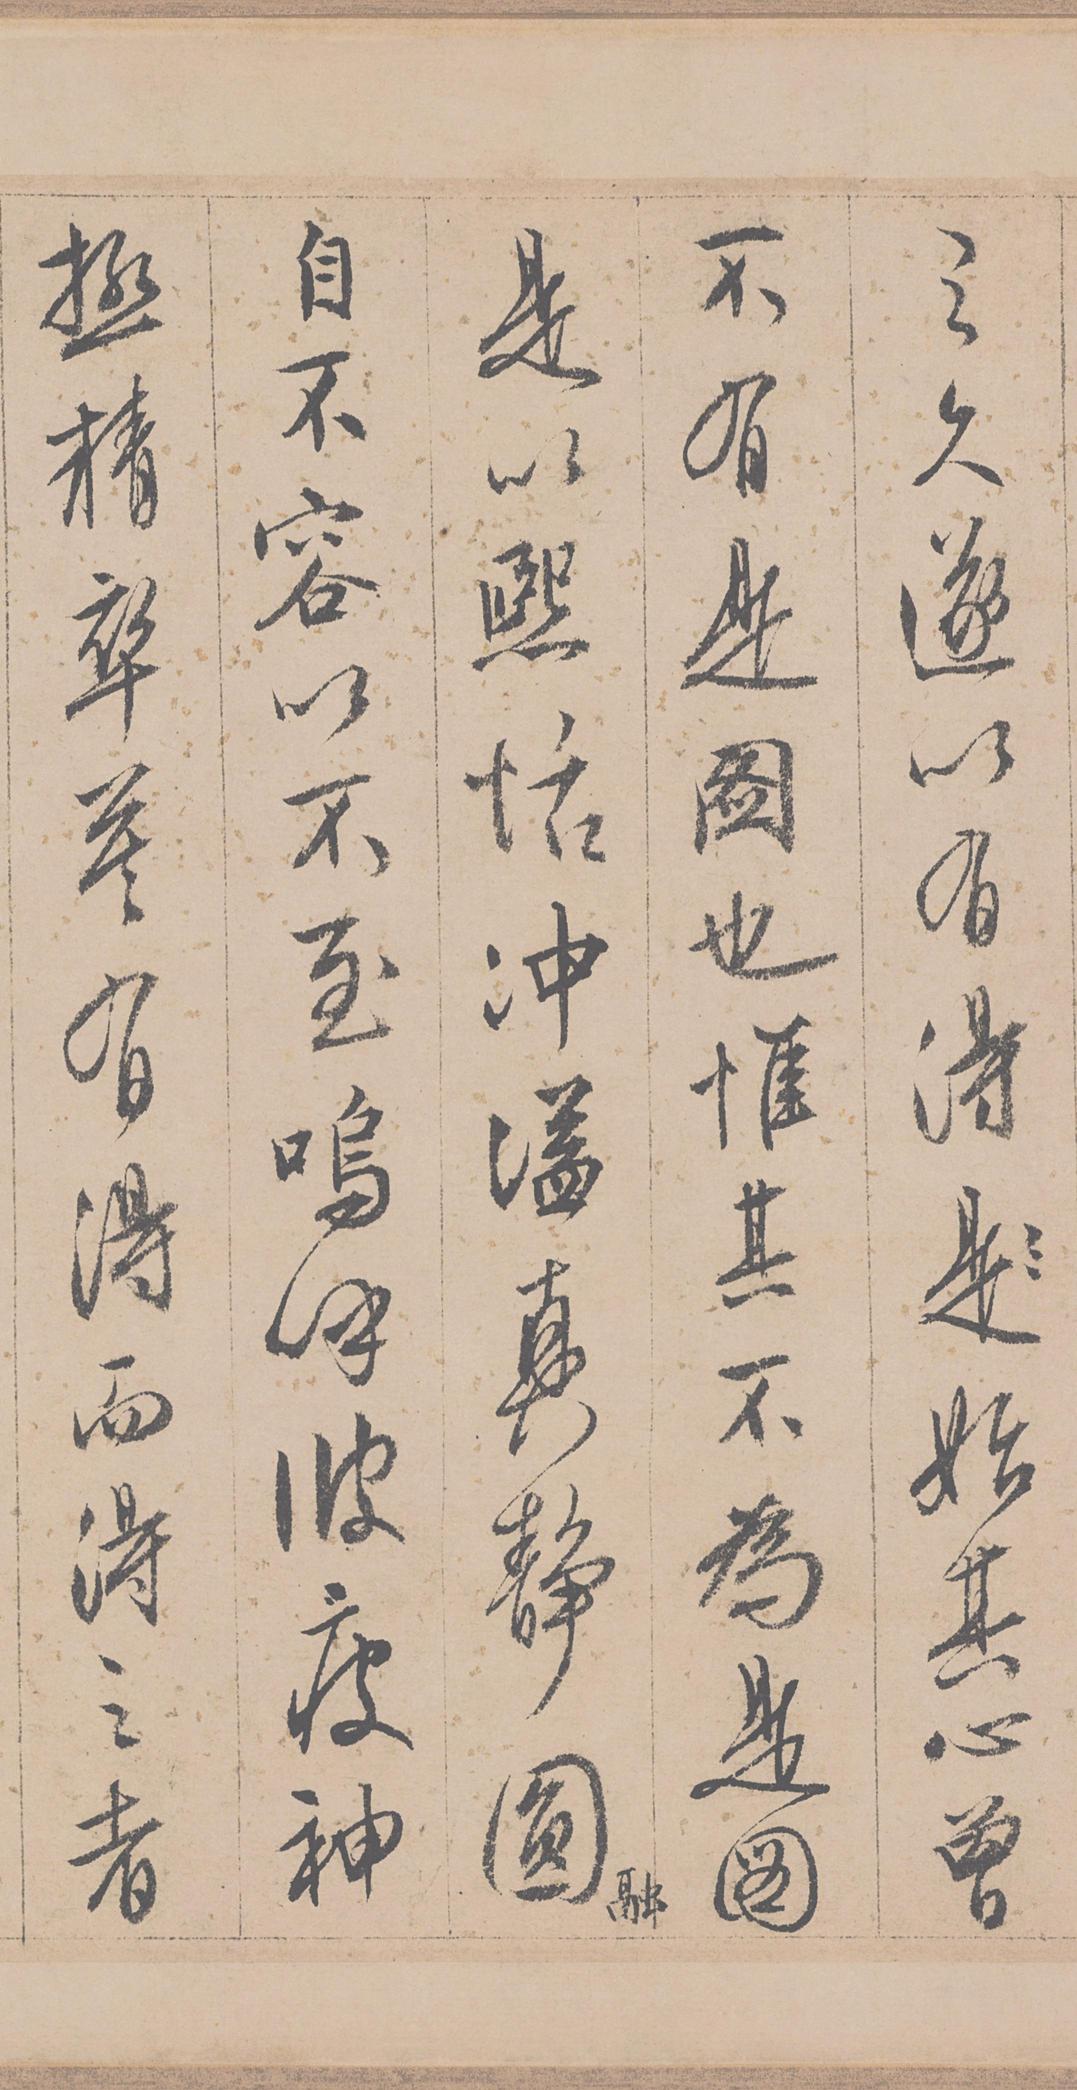 之久遂以有得是始其心曾
不有是圖也惟其不為是圖
是以熙恬沖溢真靜圓融
自不容以不至嗚呼彼疲神
極精卒莫有得而得之者